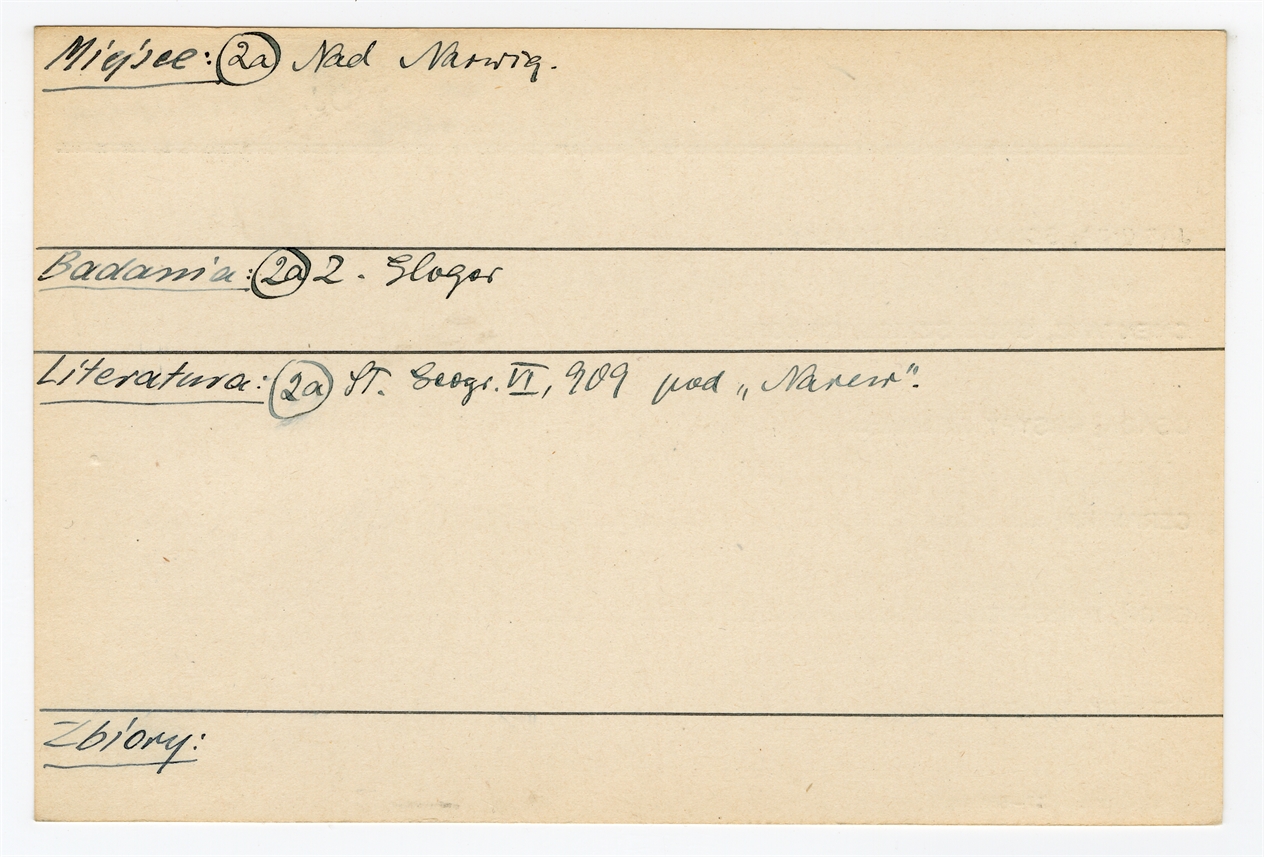 Miejsce: 2a Nad Narwią.
Badania: 2a Z. Gloger
Literatura: 2a Sł. Geogr. VI, 909 pod „Narew".
Zbiory: